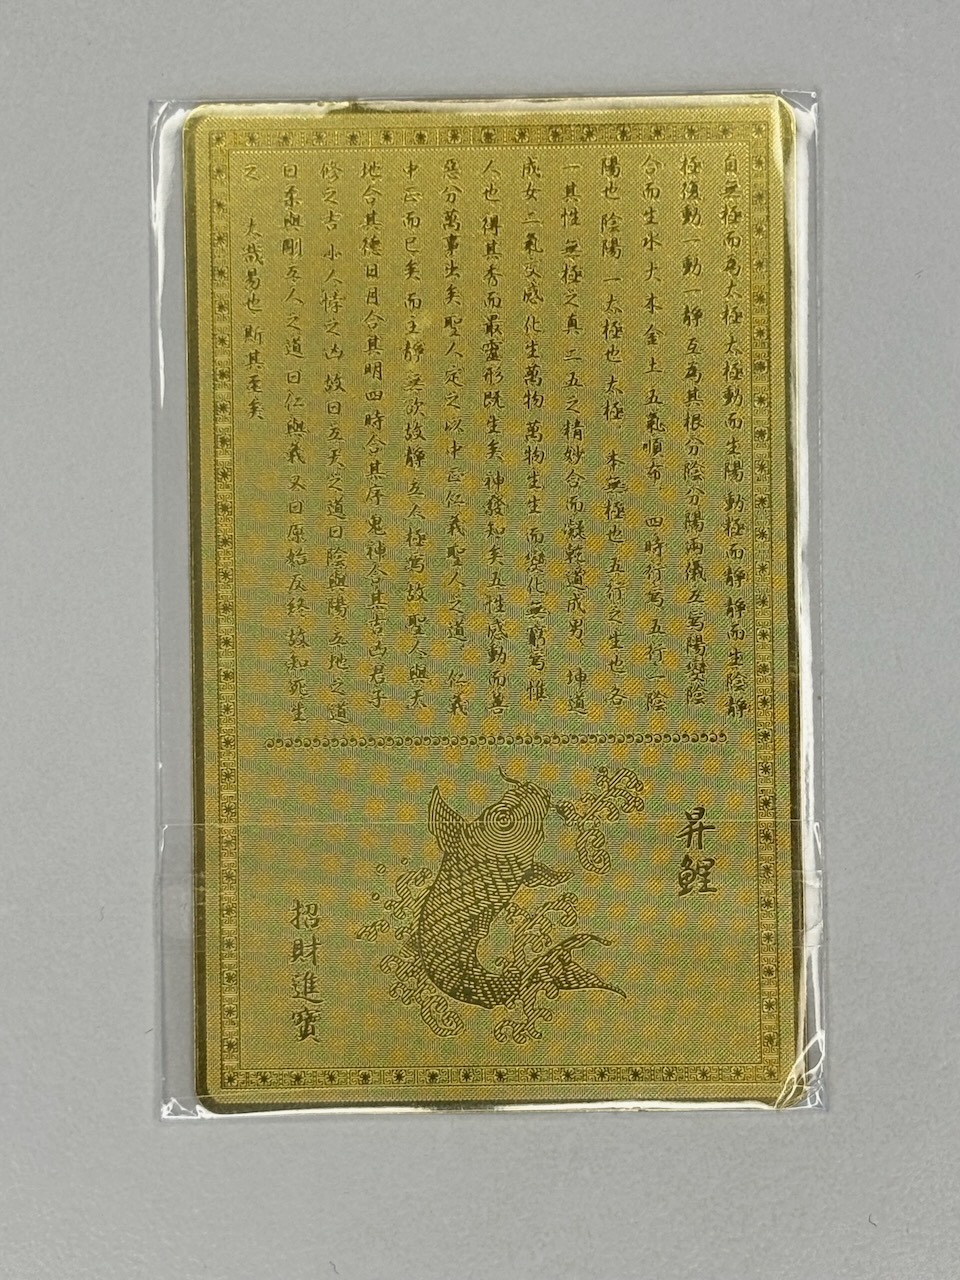 自無極而為太極太極動而生陽動極而靜靜而生陰靜
極復動一動一靜互為其根分陰分陽兩儀立焉陽變陰
合而生水火木金土五氣順布四時行焉五行一陰
陽也陰陽一太極也太極本無極也五行之生也各
一其性無極之真二五之精妙合而凝乾道成男坤道
成女二氣交感化生萬物萬物生生而變化無窮焉惟
人也得其秀而最靈形既生矣神發知矣五性感動而善
惡分萬事出矣聖人定之以中正仁義聖人之道仁義
中正而已矣而主靜無欲故靜立人極焉故聖人與天
地合其德日月合其明四時合其序鬼神合其吉凶君子
修之吉小人悖之凶故曰立天之道曰陰與陽立地之道
曰柔與剛立人之道曰仁與義又曰原始反終故知死生
之
大哉易也斯其至矣
昇鯉
招財進寶